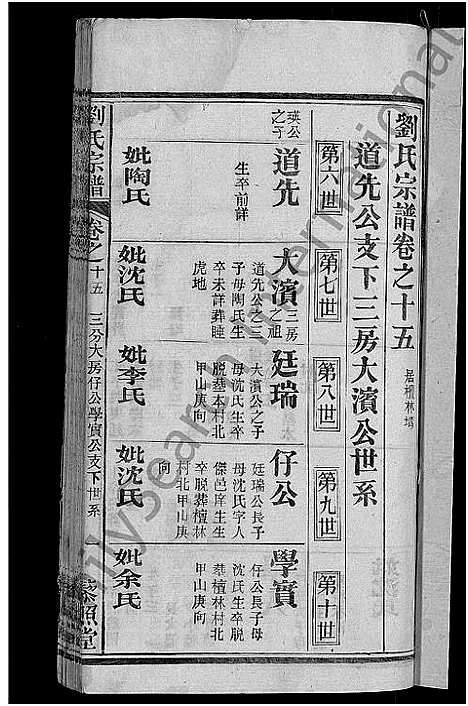 劉氏宗譜卷之十五
居檀林塆
道先公支下三房大濱公世系
第六世
第七世
第八世
第九世
第十世
瑛公
之子
道先
生卒前詳
妣陶氏
大濱
三房
之祖
道先公之三
子母陶氏生
卒未詳葬睡
虎地
妣沈氏
廷瑞
大濱公之子
母沈氏生卒
脱葬本村北
甲山庚向
妣李氏
仔公
廷瑞公長子
母沈氏字人
傑邑庠生生
卒脱葬檀林
村北甲山庚
向
妣沈氏
學實
仔公長子母
沈氏生卒脱
葬檀林村北
甲山庚向
妣余氏
劉氏宗譜
卷之十五
三分大房仔公學實公支下世系
藜照堂